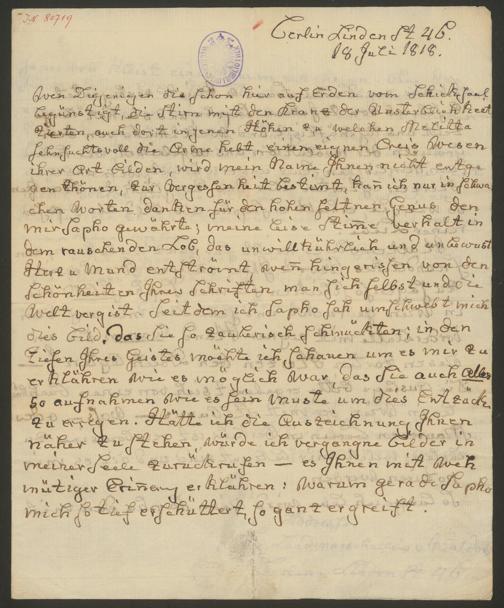 I.N. 80719
Berlin Linden St 46.
18 Juli 1818.
Wen Diejenigen die schon hier auf Erden vom Schicksaal
begünstigt, die Stirn mit den Kranz der Unsterblichkeit
zierten, auch dort in jenen Höhen zu welchen Melitta
sehnsuchtsvoll die Arme hebt, einen eignen Creis Wesen
ihrer Art bilden, wird mein Name Ihnen nicht entge
gen thönen, zur Vergessenheit bestimt, kan ich nur in schwa
chen Worten danken für den hohen seltnen Genus den
mir Sapho gewährte; meine leise Stime verhalt in
dem rauschenden Lob, das unwillkührlich und unbewust
Herz u Mund entströmt, wen hingerissen von den
Schönheiten Ihrer Schriften man sich selbst und die
Welt vergist. Seitdem ich Sapho sah umschwebt mich
dies Bild, das Sie so zauberisch schmückten; in den
Tiefen Ihres Geistes möchte ich schauen um es mir zu
erklähren wie es möglich war das Sie auch alles
so aufnahmen wie es sein muste um dies Entzück
zu erregen. Hätte ich die Auszeichnung Ihnen
näher zu stehen würde ich vergangne Bilder in
meiner Seele zurückrufen — es Ihnen mit weh
mütiger Erinerung erklähren: warum gerade Sapho
mich so tief erschüttert, so ganz ergreift.